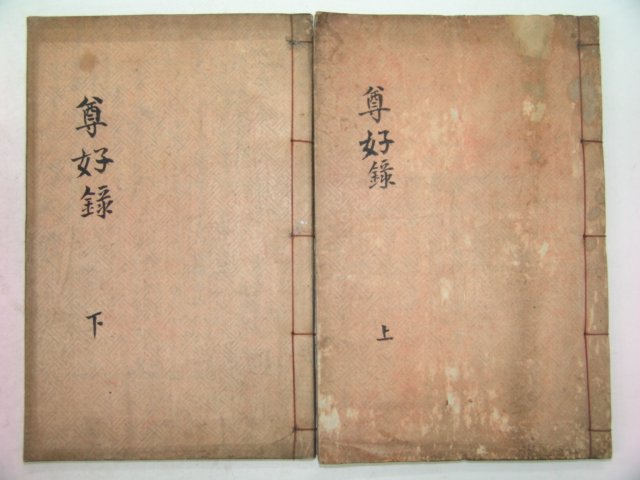 尊好錄
上
尊好錄
下